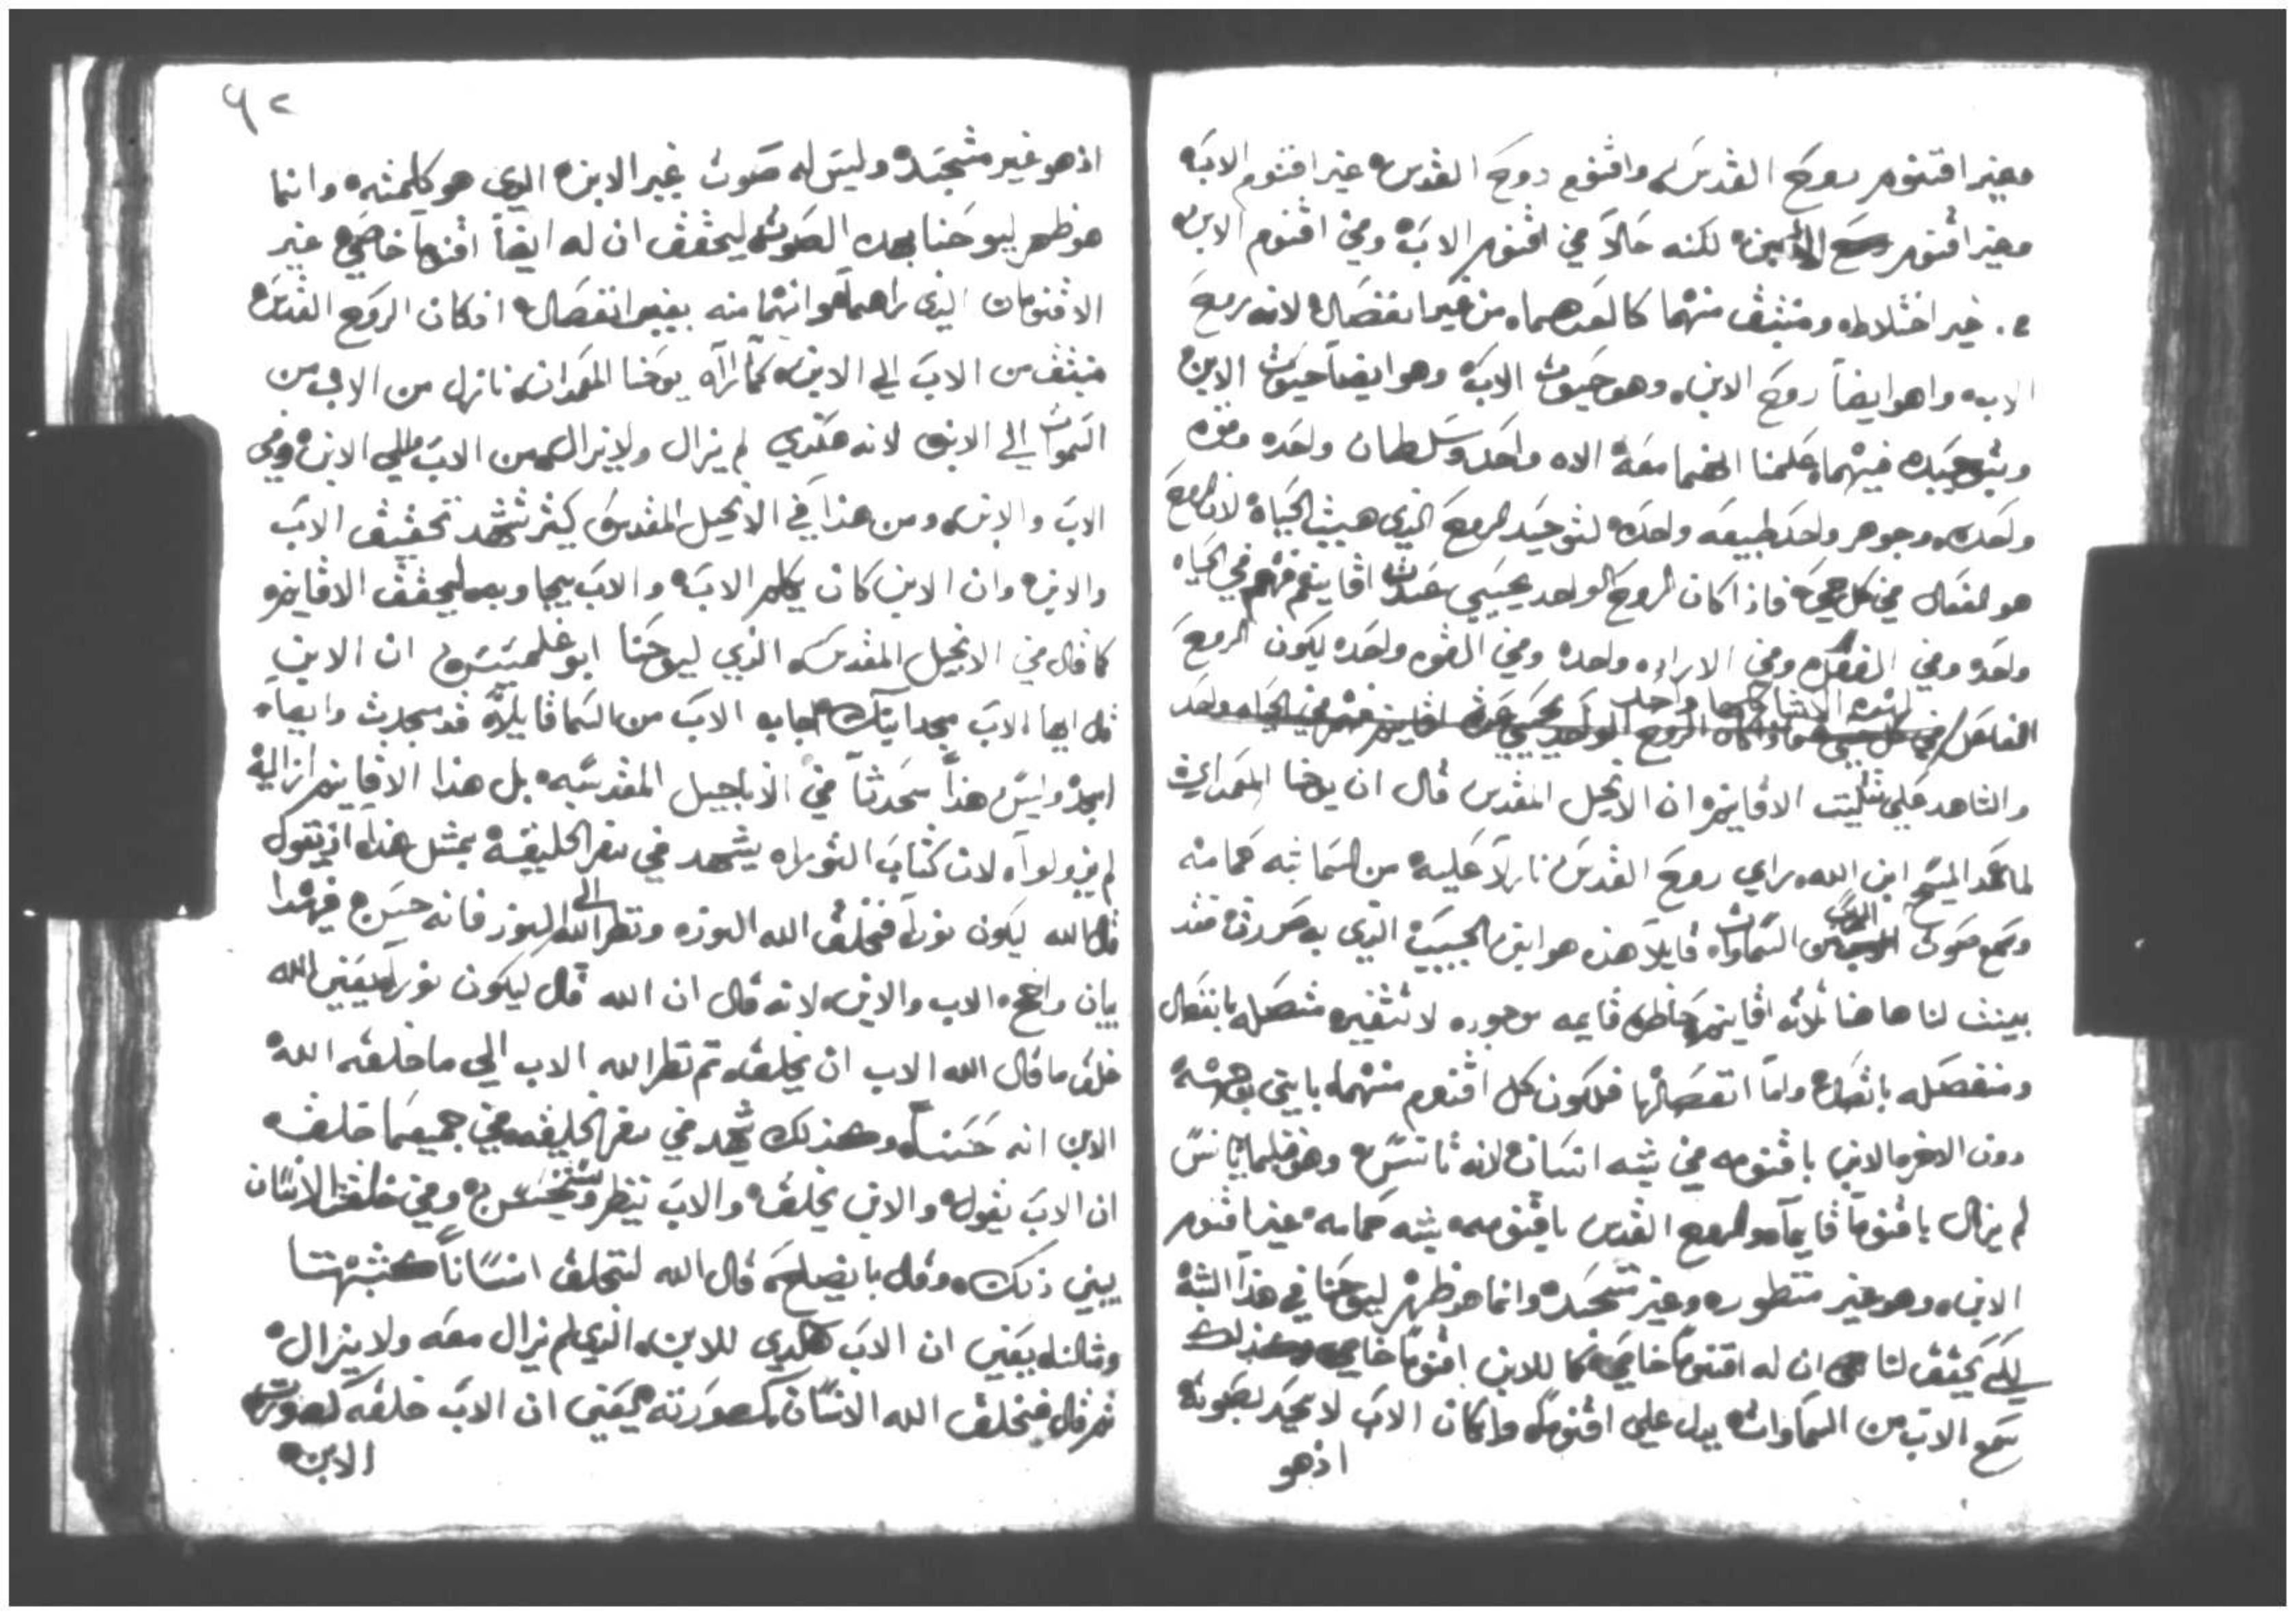 وغير اقنوم روح القدس واقنوم روح القدس غير اقنوم الابَ
وغير اقنوم الابن لكنه حَالاً في اقنوم الابَ وفي اقنوم الابن
غير اختلاط ومنبثق منهما كالعدهما من غير انفصال لانه روحَ
الاب واهو ايضاً روحَ الابن وهو حَيوت الابَ وهو ايضاً حيوَت الابن
فيهما الاه واحد وسلطان واحَده وقوه
واحَده وجوهر واحد وطبيعَه واحدَه لتوحَيد الروحَ الذي هيث الحَياة لان الروحَ
هو الفعَال في كل حي فاذا كان الروحَ الواحد يحيي اقانيم فهم في الحَياه
واحَده وفي الفعل وفي الاراده واحده وفي القوه واحَده ليكون الروحَ
الفاعَل لهذه الاشيا كلها واحد
والشاهد علي تثليت الاقانيم ان الانجيل المقدس قال ان يوحنا المعَمدان
لما عمَد المسيَح ابن الله راي روحَ القدسَ نازلاً عَليه من السَما شبه حَمامه
وسَمع صَوت الابَ من السَماوات قايلاً هذه هو ابني الحبيبَ الذي به سَررت فقد
بينت لنا هاهنا ثلاثه اقانيم قايمه موجوده لا تتغير متصَله بانفصَال
ومنفصَله باتصَال واما اتفصَالها فلكون كل اقنوم منهما
دون الاخر فالابن باقنومه في شبه انسَان لانه تانسَ وهو قبلما يتانسَ
لم يزال باقنوماً قايماً والروح القدس باقنومه بشبه حَمامه غير اقنوم
الابن وهو غير منظوره وغير متجسَده وانما هو ظهر ليوحَنا في هذا الشبه
لكي يحَقق لنا ان له اقنوماً خاصَي كما للابن اقنوماً خاصي وكذلك
سَمع الابَ من السَماوات يدل علي اقنومه وان كان الابَ لا يحَد بصَوته
اذهو
٩٢
اذهو غير متجسَد وليسَ له صَوت غير الابن الذي هو كلمته وانما
هو ظهر ليوحَنا بهده الصَوت ليحقق ان له ايضاً اقنوماً خاصَي غير
الاقنومان الذي راهما وانهما منه بغير انفصَال اذكان الروحَ القدسَ
منبثق من الابَ الي الابن كما رآه يوحَنا المعَمدان نازل من الاب من
السَموات الي الابن لانه هكدي لم يزال ولايزال من الابَ الي الابن وفي
الابَ والابن ومن هذا في الانجيل المقدسَ كيثر تشهد تحَقيق الابَ
والابن وان الابن كان يكلم الابَ والابَ يجاوبه ليحقق الاقانيم
كما قال في الانجيل المقدسَ الذي ليوحَنا ابو غلمسَيسَ ان الابن
قال ايها الابَ مجد ابنك فاجابه الابَ من السَما قايلاً قد مجدت وايضاً
امجد وليسَ هذا محَدثاً في الاناجيل المقدسَه بل هذا الاقانيم ازاليه
لم يزولوا لان كتابَ التوراه يشهد في سفر الخليقه بمثل هذا اذ يقول
قال الله ليكون نوراً فخلق الله النوره ونظر الله الي النور فانه حسَن فهذا
بيان واضح الاب والابن لانه قال ان الله قال ليكون نوراً يعَني الله
خلق ما قال الله الاب ان يخلق تم نظر الله الاب الي ما خلقه الله
الابن انه حَسَناً وكذلك شهد في سفر الخليقه في جميع ما خلقه
ان الابَ يقول والابن يخلق والابَ ينظر ويستحسَن وفي خلقت الانسَان
يبين ذلك وقال بايضاحَ قال الله لنخلق انسَاناً كشبهتنا
ومثالنا يعَني ان الابَ للابن الذي لم يزال معَه ولا يزال
ثم قال فخلق الله الانسَان كصورته يعَني ان الابَ خلقه كصورت
الابن